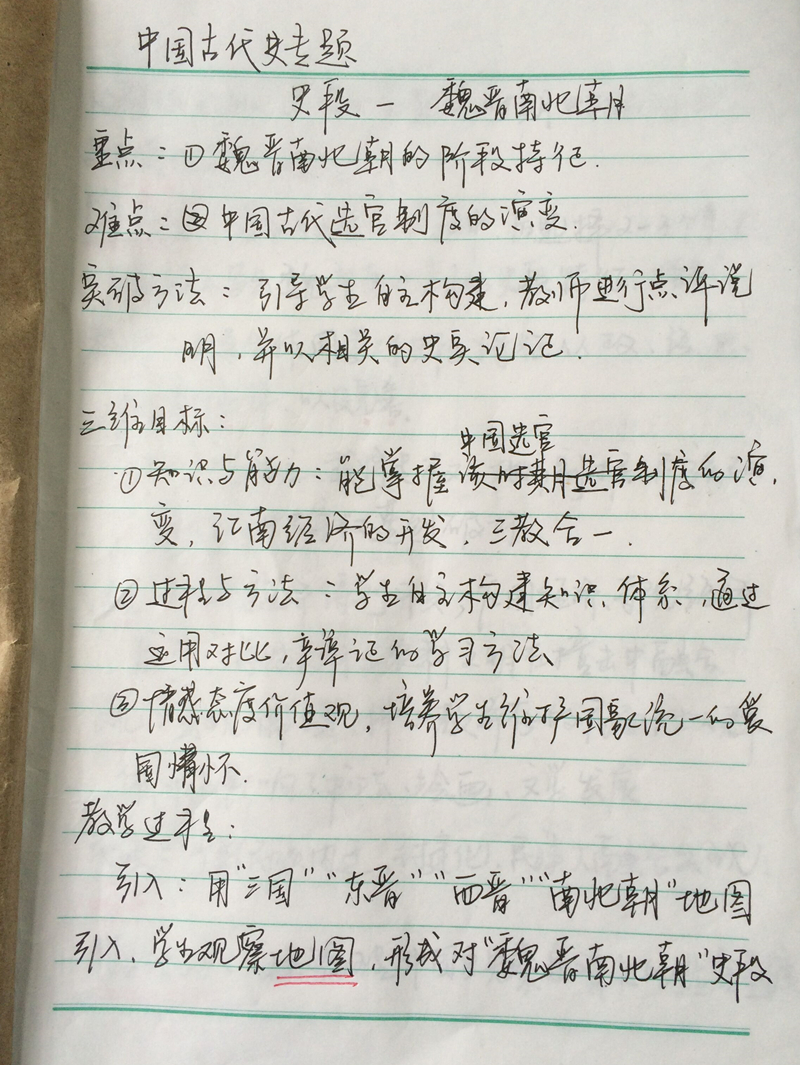 中国古代史专题
史段一 魏晋南北朝
重点：①魏晋南北朝的阶段特征.
难点：②中国古代选官制度的演变.
突破方法：引导学生自主构建，教师进行点评说
明，并以相关的史实论记.
三维目标：
中国选官
①知识与能力：能掌握该时期选官制度的演.
变，江南经济的开发，三教合一.
②过程与方法：学生自主构建知识体系，通过
运用对比，辛谆记的学习方法
③情感态度价值观，培养学生维护国家统一的爱
国情怀.
教学过程：
引入：用"三国""东晋""西晋""南北朝"地图
引入，学生观察地图，形成对"魏晋南北朝"史段